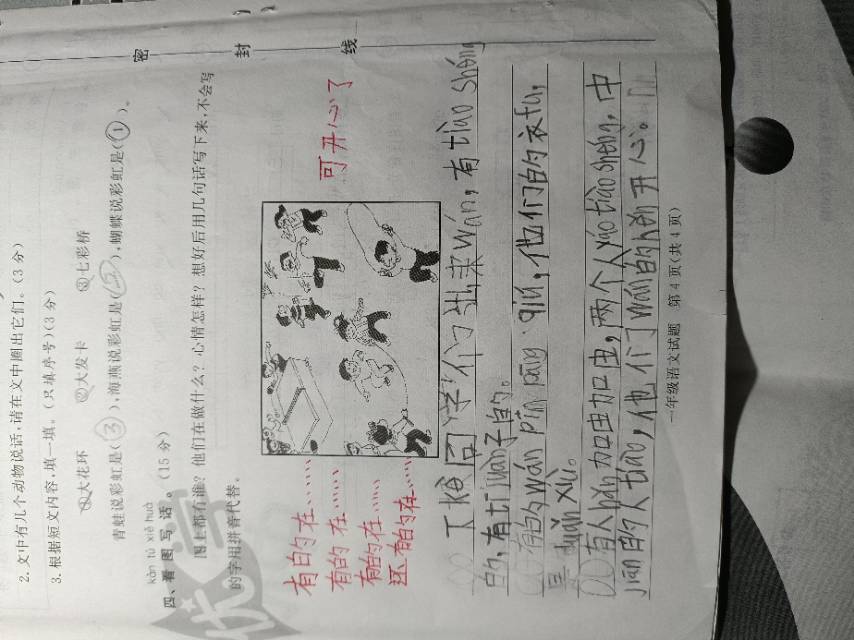 2. 文中有几个动物说话,请在文中圈出它们。(3分)
3. 根据短文内容,填一填。(只填序号)(3分)
①大花环 ②大发卡 ③七彩桥
青蛙说彩虹是(③),海燕说彩虹是(②),蝴蝶说彩虹是(①)。
kàn tú xiě huà
四、看图写话。(15分)
图上都有谁?他们在做什么?心情怎样?想好后用几句话写下来,不会写
的字用拼音代替。
有的在……
有的在……
有的在……
还有的在……
可开心了
下课同学们出来wán,有tiào shéng
的,有tī juàn子的。
有的wán pīn pāng qiú,他们的衣fu,
是duǎn xiù。
有人hǎn加由加由,两个人yáo tiào shéng,中
jiān的人tiào,他们wán的hěn开心。
一年级语文试题 第4页(共4页)
密 封 线